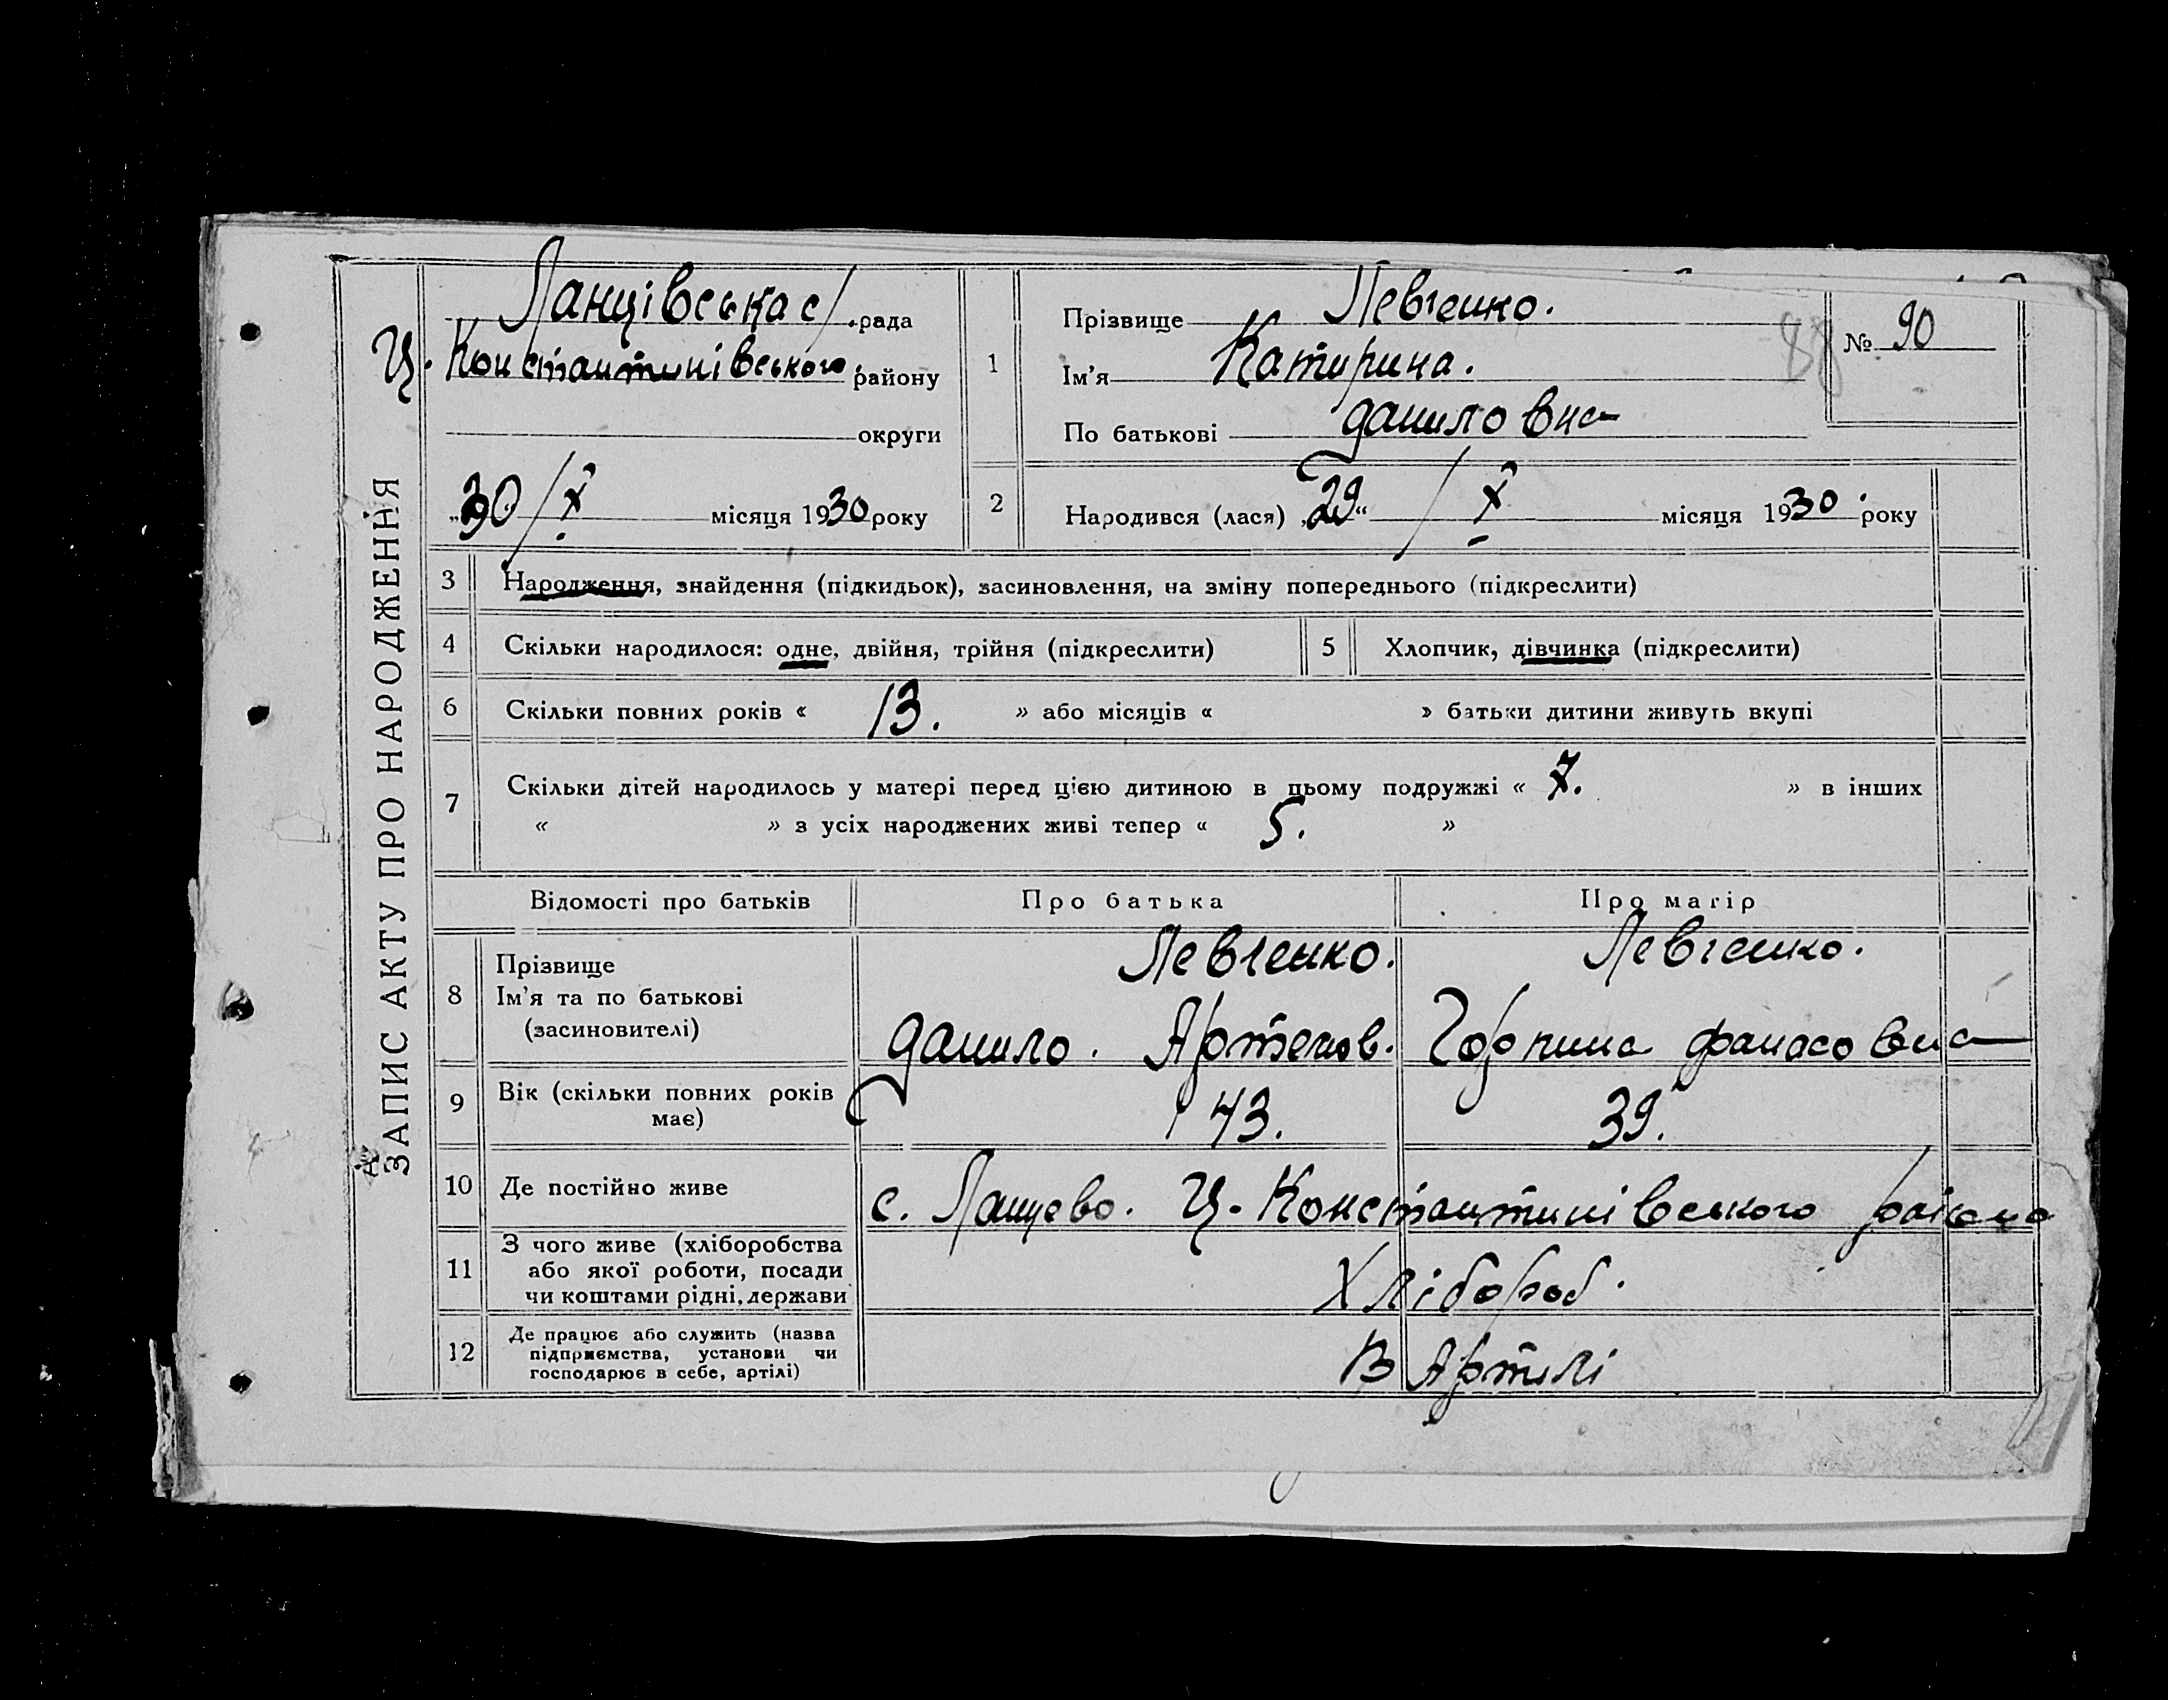 ЗАПИС АКТУ ПРО НАРОДЖЕННЯ
Ланцівська с/рада
Ц. Константинівського району
округи
„30/X місяця 1930 року
1
Прізвище Левченко.
Ім'я Катирина.
По батькові Даниловна
№ 90
88
2 Народився (лася) „29“ /X місяця 1930 року
3 Народження, знайдення (підкидьок), засиновлення, на зміну попереднього (підкреслити)
4 Скільки народилося: одне, двійня, трійня (підкреслити) 5 Хлопчик, дівчинка (підкреслити)
6 Скільки повних років « 13. » або місяців « » батьки дитини живуть вкупі
7 Скільки дітей народилось у матері перед цією дитиною в цьому подружжі « 7. » в інших
« » з усіх народжених живі тепер « 5. »
Відомості про батьків Про батька Про матір
8 Прізвище Левченко. Левченко.
Ім'я та по батькові
(засиновителі) Данило. Артемов. Горпина Фанасовна
9 Вік (скільки повних років
має) 43. 39.
10 Де постійно живе с. Ланцево. Ц-Константинівського району
11 З чого живе (хліборобства
або якої роботи, посади
чи коштами рідні, держави Хлібороб.
12 Де працює або служить (назва
підприємства, установи чи
господарює в себе, артілі) В Артилі